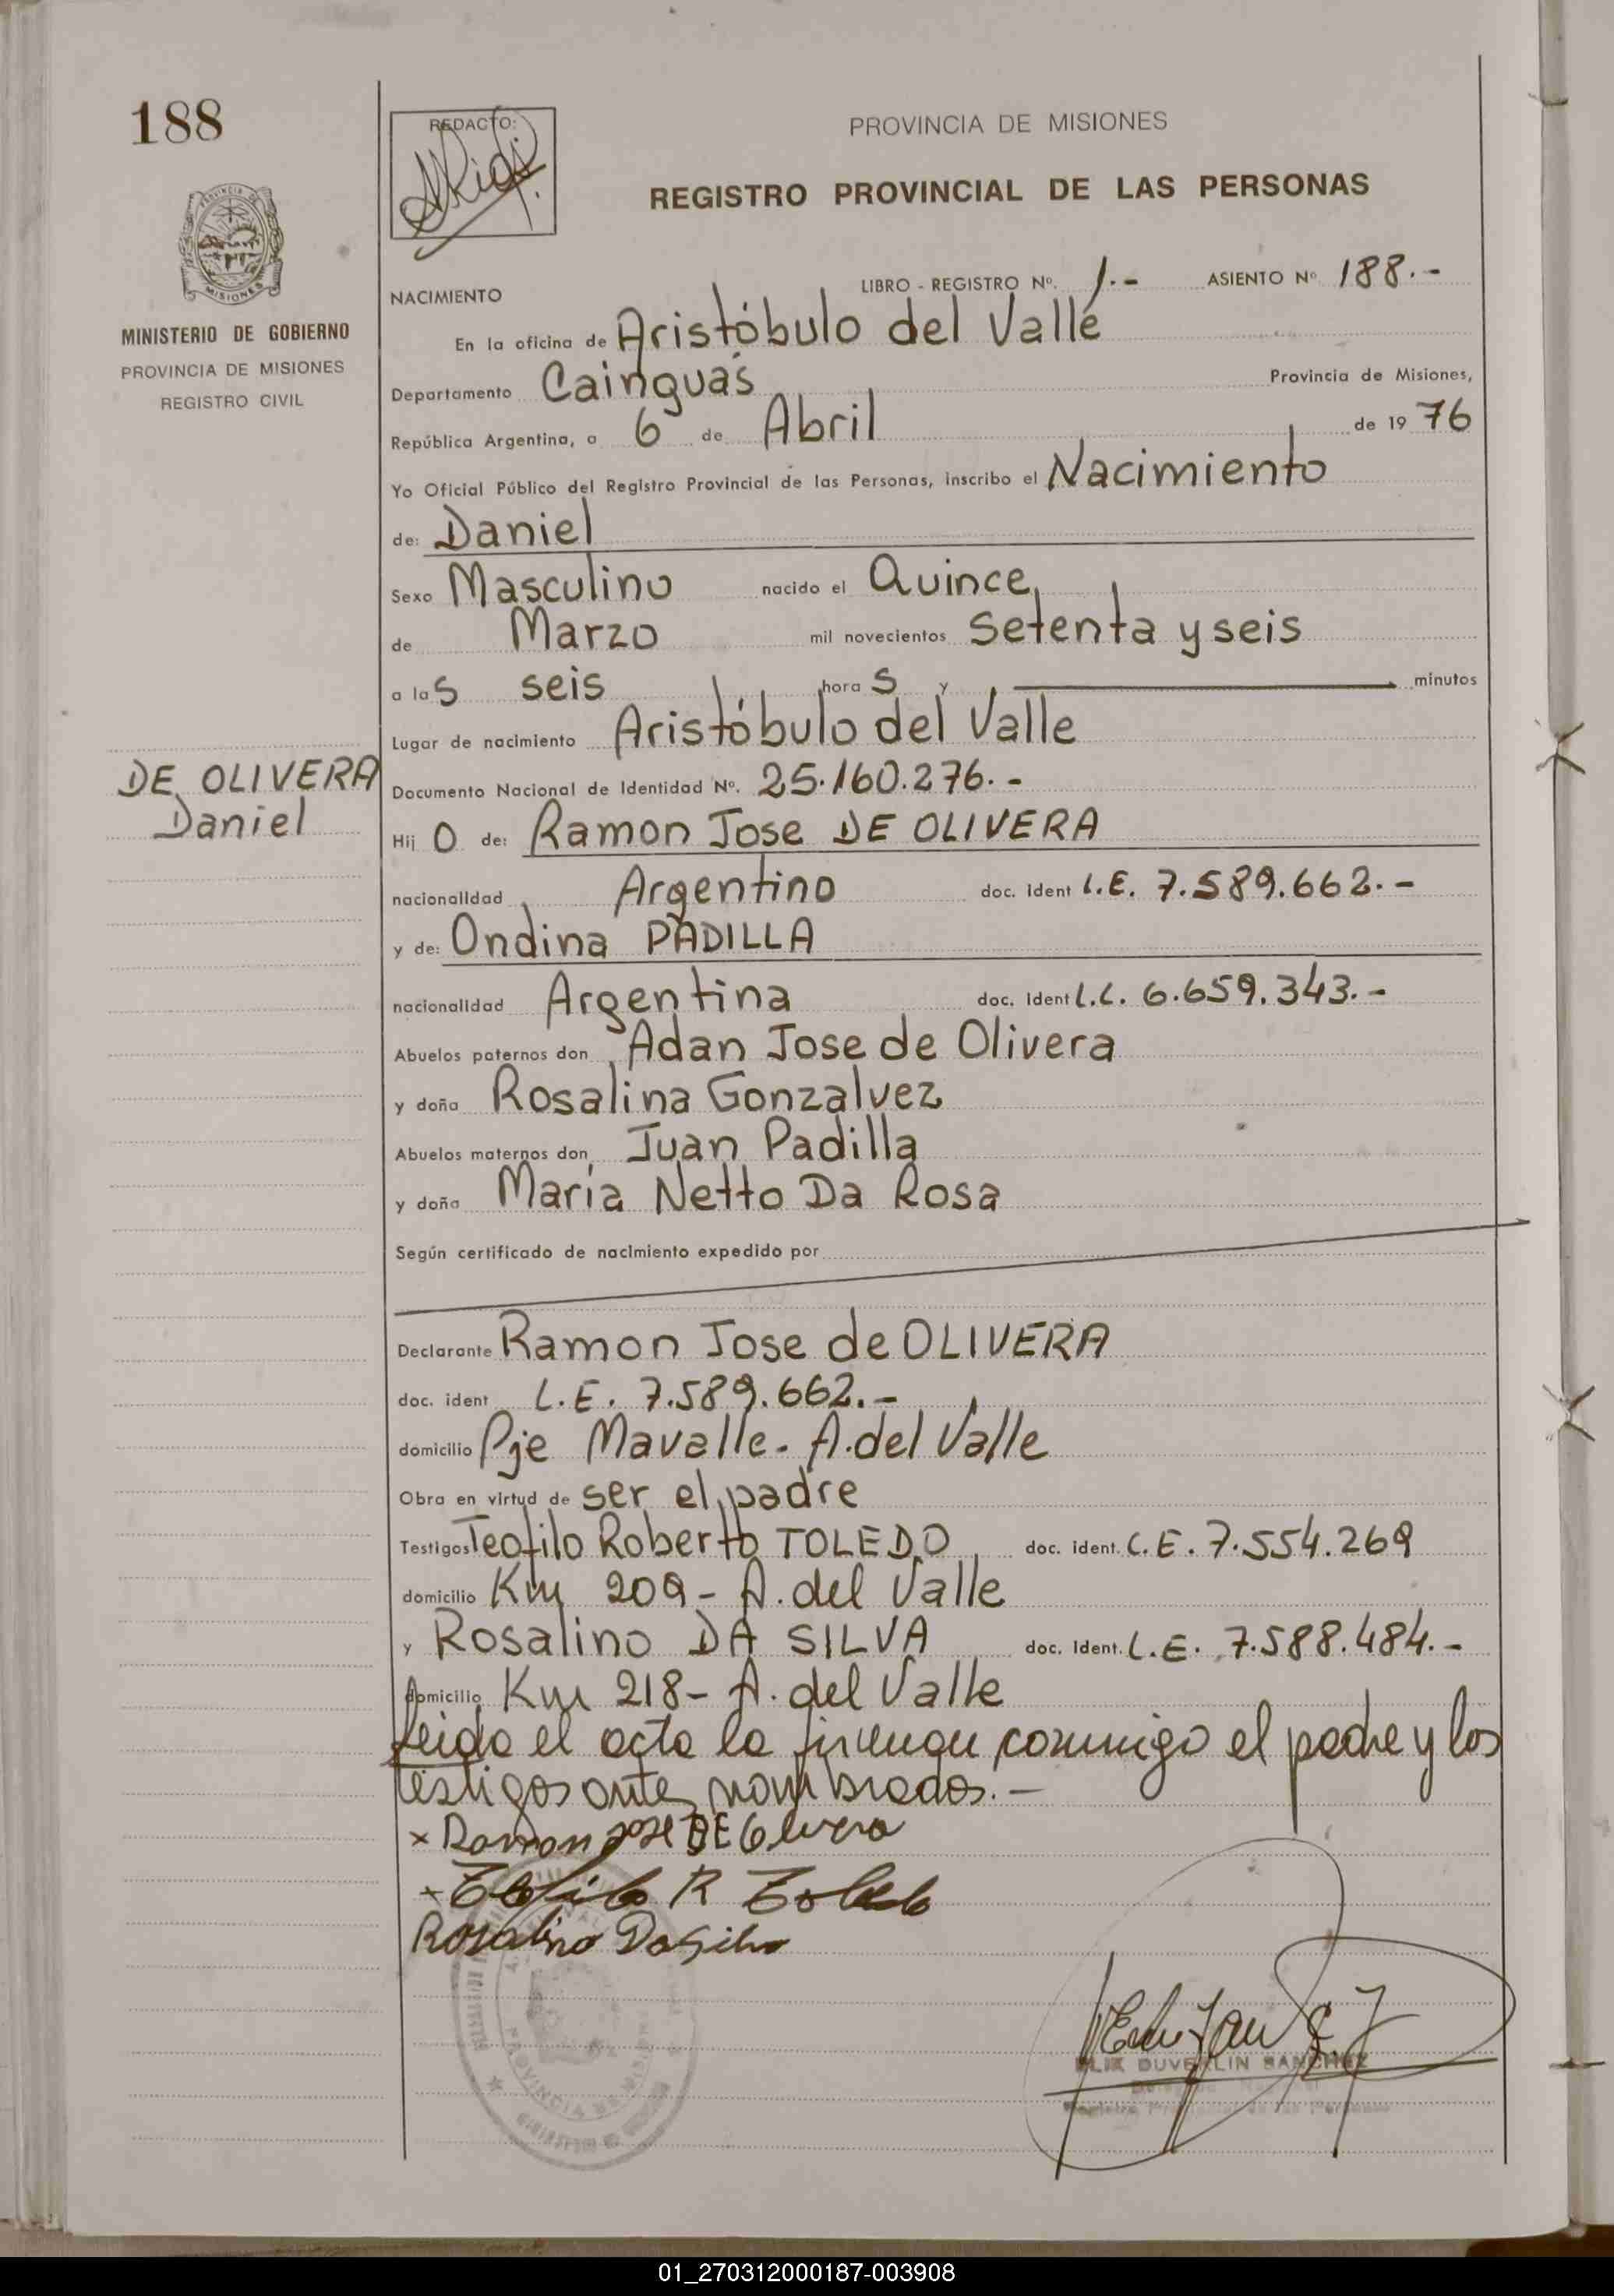 188
PROVINCIA
MISIONES
MINISTERIO DE GOBIERNO
PROVINCIA DE MISIONES
REGISTRO CIVIL
DE OLIVERA
Daniel
REDACTO:
PROVINCIA DE MISIONES
REGISTRO PROVINCIAL DE LAS PERSONAS
NACIMIENTO LIBRO - REGISTRO Nº. 1.- ASIENTO Nº 188.-
En la oficina de Aristóbulo del Valle
Departamento Cainguás Provincia de Misiones,
República Argentina, a 6 de Abril de 19 76
Yo Oficial Público del Registro Provincial de las Personas, inscribo el Nacimiento
de: Daniel
Sexo Masculino nacido el Quince
de Marzo mil novecientos Setenta y seis
a las seis horas y minutos
Lugar de nacimiento Aristóbulo del Valle
Documento Nacional de Identidad Nº. 25.160.276.-
Hij O de: Ramon Jose DE OLIVERA
nacionalidad Argentino doc. ident L.E. 7.589.662.-
y de: Ondina PADILLA
nacionalidad Argentina doc. ident L.C. 6.659.343.-
Abuelos paternos don Adan Jose de Olivera
y doña Rosalina Gonzalvez
Abuelos maternos don Juan Padilla
y doña María Netto Da Rosa
Según certificado de nacimiento expedido por
Declarante Ramon Jose de OLIVERA
doc. ident L.E. 7.589.662.-
domicilio Pje Mavalle - A. del Valle
Obra en virtud de ser el padre
Testigos Teofilo Roberto TOLEDO doc. ident. L.E. 7.554.269
domicilio Km 209 - A. del Valle
y Rosalino DA SILVA doc. ident. L.E. 7.588.484.-
domicilio Km 218 - A. del Valle
Leida el acta la firman conmigo el padre y los
testigos ante nombrados.-
x Ramon Jose DE Olivera
x Teofilo R Toledo
Rosalino Da Silva
DUVERLIN SANCHEZ
Registro Provincial de las Personas
01_270312000187-003908